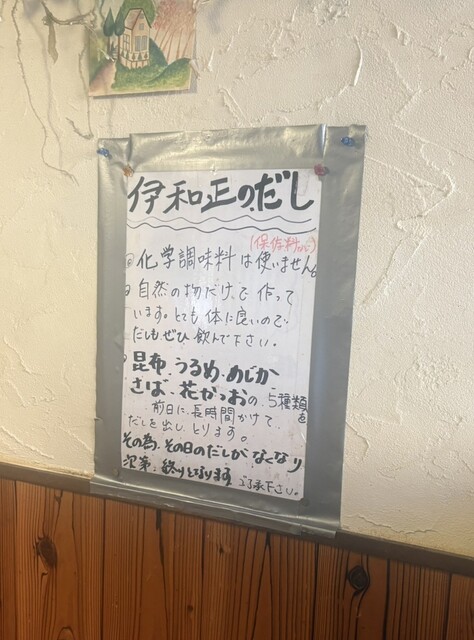 伊和正のだし
(保存料なし)
化学調味料は使いません。
自然の物だけ、で作って
います。とても体に良いので
だしもぜひ飲んで下さい。
昆布、うるめ、めじか
さば、花かつおの、5種類を
前日に、長時間かけて、
だしを出し、とります。
その為、その日のだしがなくなり
次第、終りとなります ご了承下さい。